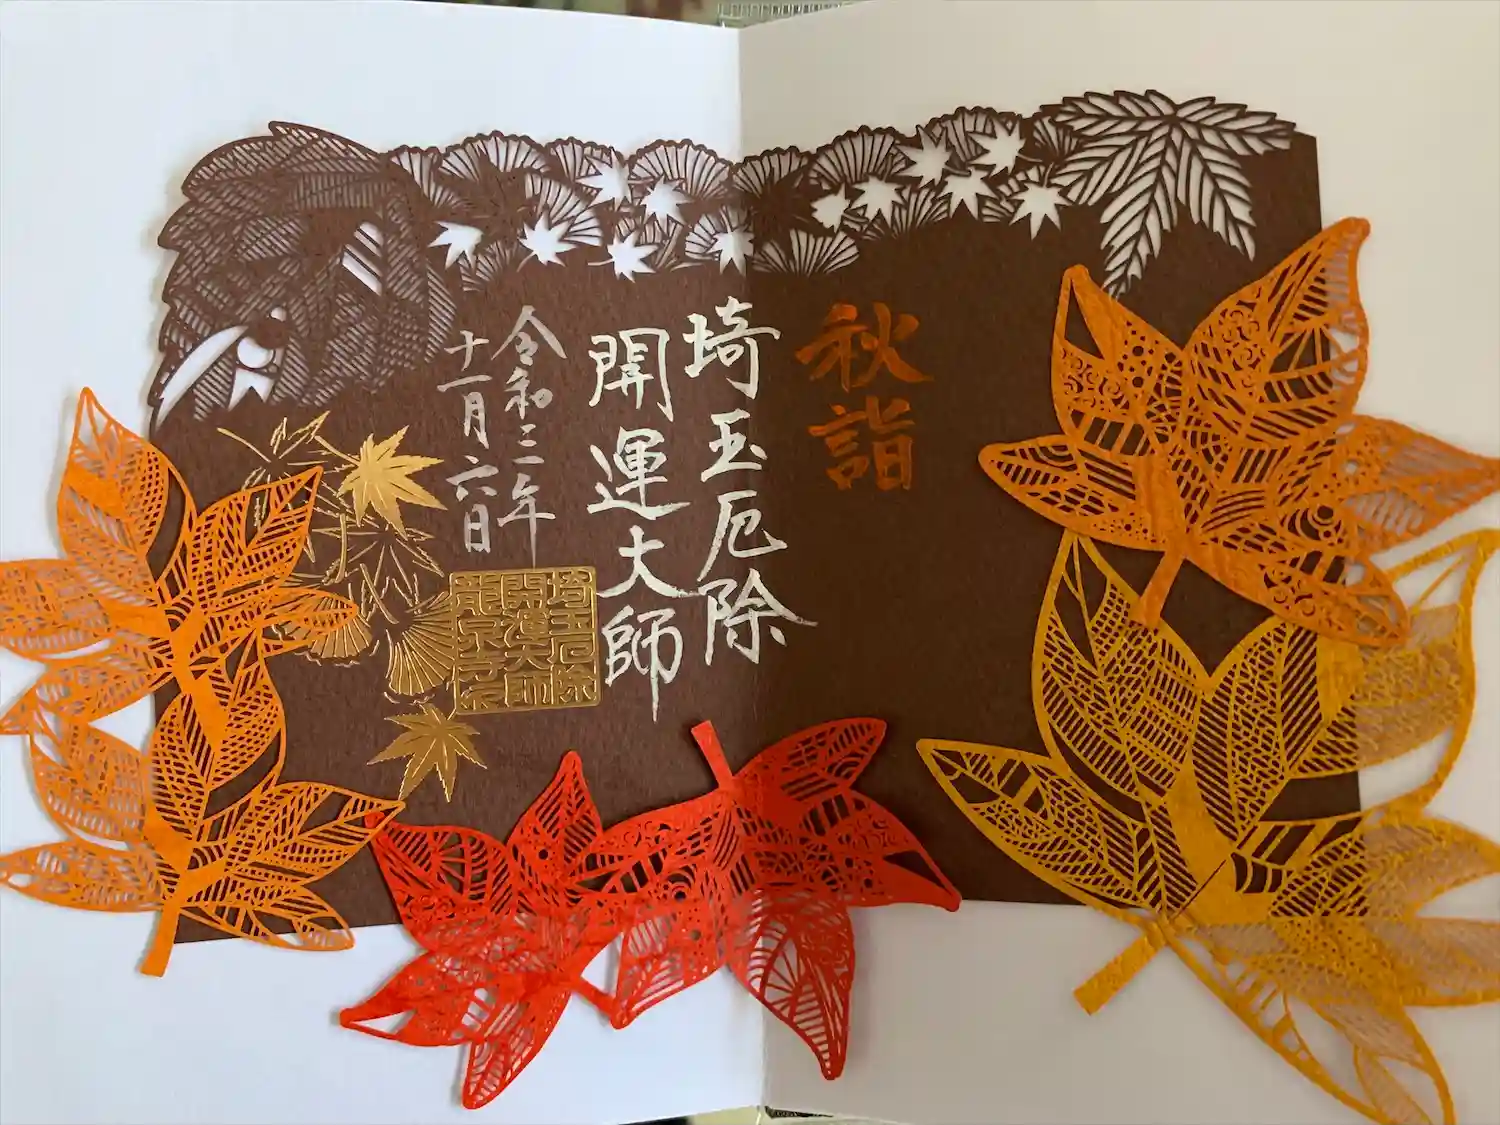 秋詣
埼玉厄除
開運大師
令和三年
十一月六日
埼玉厄除
開運大師
龍泉寺印